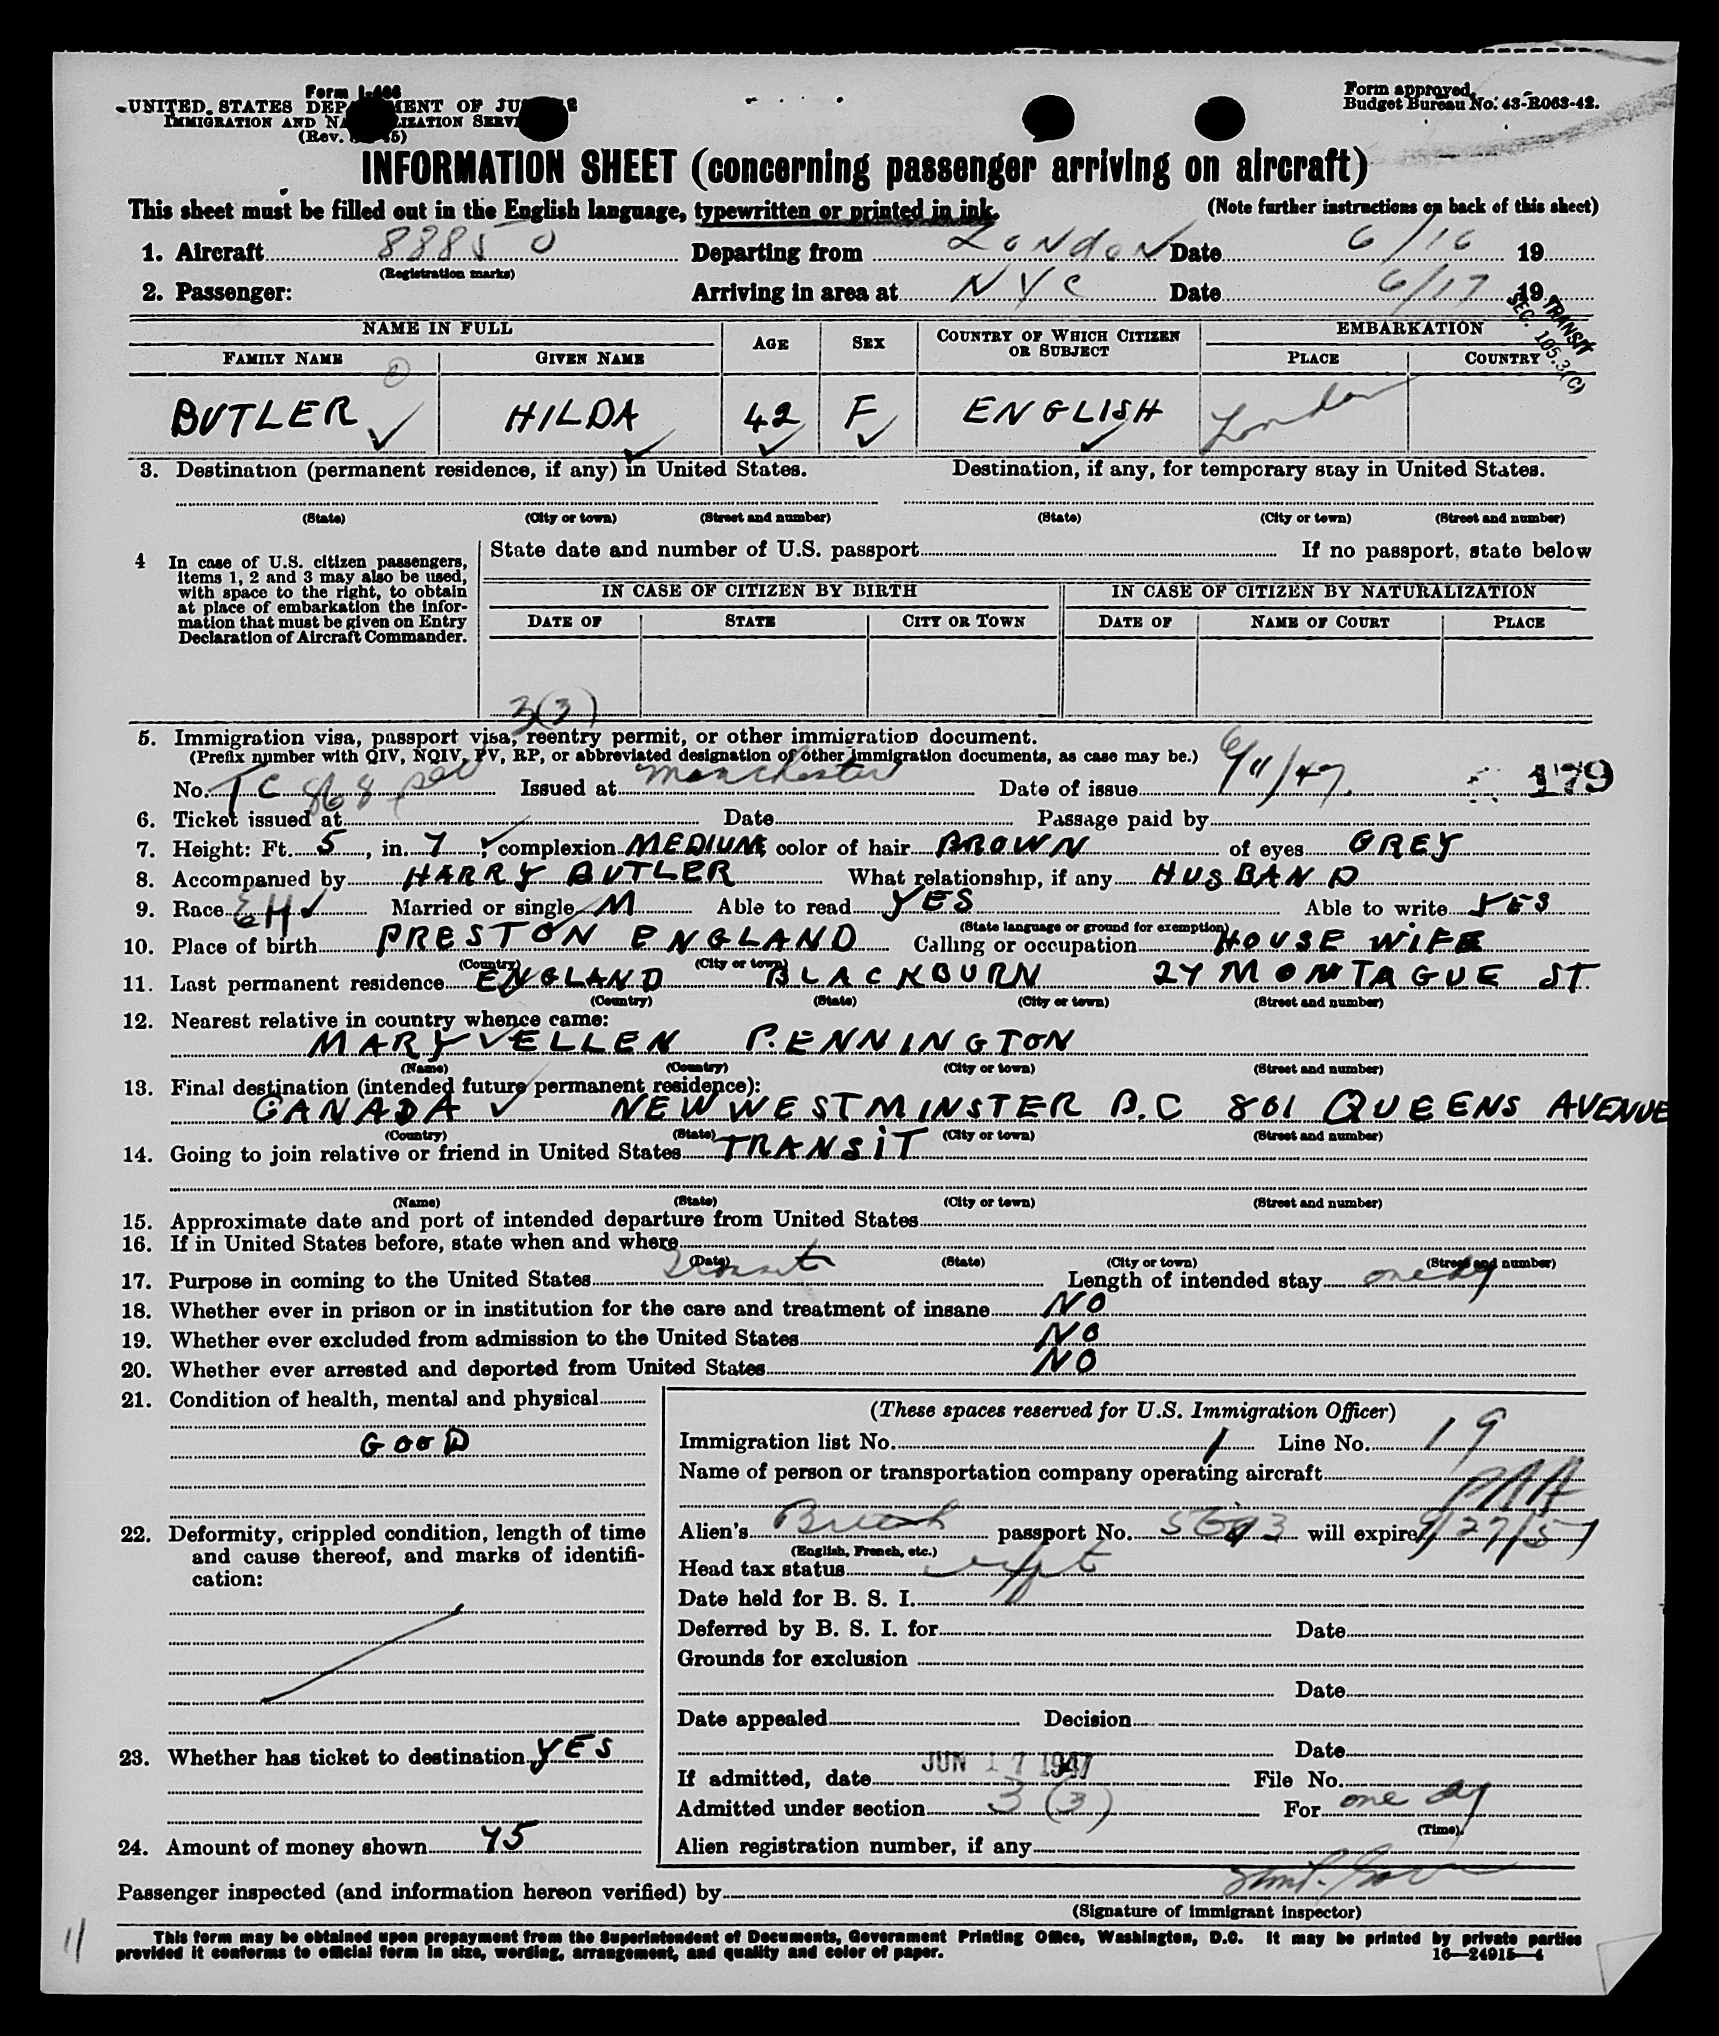 Form I-466
UNITED STATES DEPARTMENT OF JUSTICE
IMMIGRATION AND NATURALIZATION SERVICE
(Rev.
Form approved.
Budget Bureau No. 43-R063-42.
INFORMATION SHEET (concerning passenger arriving on aircraft)
This sheet must be filled out in the English language, typewritten or printed in ink.
(Note further instructions on back of this sheet)
1. Aircraft 88850 Departing from London Date 6/16 19
(Registration marks)
2. Passenger: Arriving in area at NYC Date 6/17 19
TRANSIT
SEC. 105.3(C)
NAME IN FULL AGE SEX COUNTRY OF WHICH CITIZEN OR SUBJECT EMBARKATION
FAMILY NAME GIVEN NAME PLACE COUNTRY
BUTLER HILDA 42 F ENGLISH London
3. Destination (permanent residence, if any) in United States. Destination, if any, for temporary stay in United States.
(State) (City or town) (Street and number) (State) (City or town) (Street and number)
4 In case of U.S. citizen passengers, items 1, 2 and 3 may also be used, with space to the right, to obtain at place of embarkation the information that must be given on Entry Declaration of Aircraft Commander.
State date and number of U.S. passport If no passport, state below
IN CASE OF CITIZEN BY BIRTH IN CASE OF CITIZEN BY NATURALIZATION
DATE OF STATE CITY OR TOWN DATE OF NAME OF COURT PLACE
3(3)
5. Immigration visa, passport visa, reentry permit, or other immigration document.
(Prefix number with QIV, NQIV, PV, RP, or abbreviated designation of other immigration documents, as case may be.)
No. TC 868 Issued at Manchester Date of issue 6/11/47 179
6. Ticket issued at Date Passage paid by
7. Height: Ft. 5, in. 7, complexion MEDIUM, color of hair BROWN of eyes GREY
8. Accompanied by HARRY BUTLER What relationship, if any HUSBAND
9. Race EH Married or single M Able to read YES Able to write YES
(State language or ground for exemption)
10. Place of birth PRESTON ENGLAND Calling or occupation HOUSE WIFE
(Country) (City or town)
11. Last permanent residence ENGLAND BLACKBURN 27 MONTAGUE ST.
(Country) (State) (City or town) (Street and number)
12. Nearest relative in country whence came:
MARY ELLEN PENNINGTON
(Name) (Country) (City or town) (Street and number)
13. Final destination (intended future permanent residence):
CANADA NEW WESTMINSTER B.C 801 QUEENS AVENUE
(Country) (State) (City or town) (Street and number)
14. Going to join relative or friend in United States TRANSIT
(Name) (State) (City or town) (Street and number)
15. Approximate date and port of intended departure from United States
16. If in United States before, state when and where
(Date) (State) (City or town) (Street and number)
17. Purpose in coming to the United States Transit Length of intended stay one day
18. Whether ever in prison or in institution for the care and treatment of insane NO
19. Whether ever excluded from admission to the United States NO
20. Whether ever arrested and deported from United States NO
21. Condition of health, mental and physical
GOOD
22. Deformity, crippled condition, length of time
and cause thereof, and marks of identifi-
cation:
23. Whether has ticket to destination YES
24. Amount of money shown 45
(These spaces reserved for U.S. Immigration Officer)
Immigration list No. 1 Line No. 19
Name of person or transportation company operating aircraft
PAA
Alien's British passport No. will expire
(English, French, etc.)
Head tax status
Date held for B. S. I.
Deferred by B. S. I. for Date
Grounds for exclusion
Date
Date appealed Decision
Date
If admitted, date JUN 17 1947 File No.
Admitted under section 3(3) For one day
(Time)
Alien registration number, if any
Passenger inspected (and information hereon verified) by
(Signature of immigrant inspector)
11
This form may be obtained upon prepayment from the Superintendent of Documents, Government Printing Office, Washington, D.C. It may be printed by private parties
provided it conforms to official form in size, wording, arrangement, and quality and color of paper.
16—24915-4